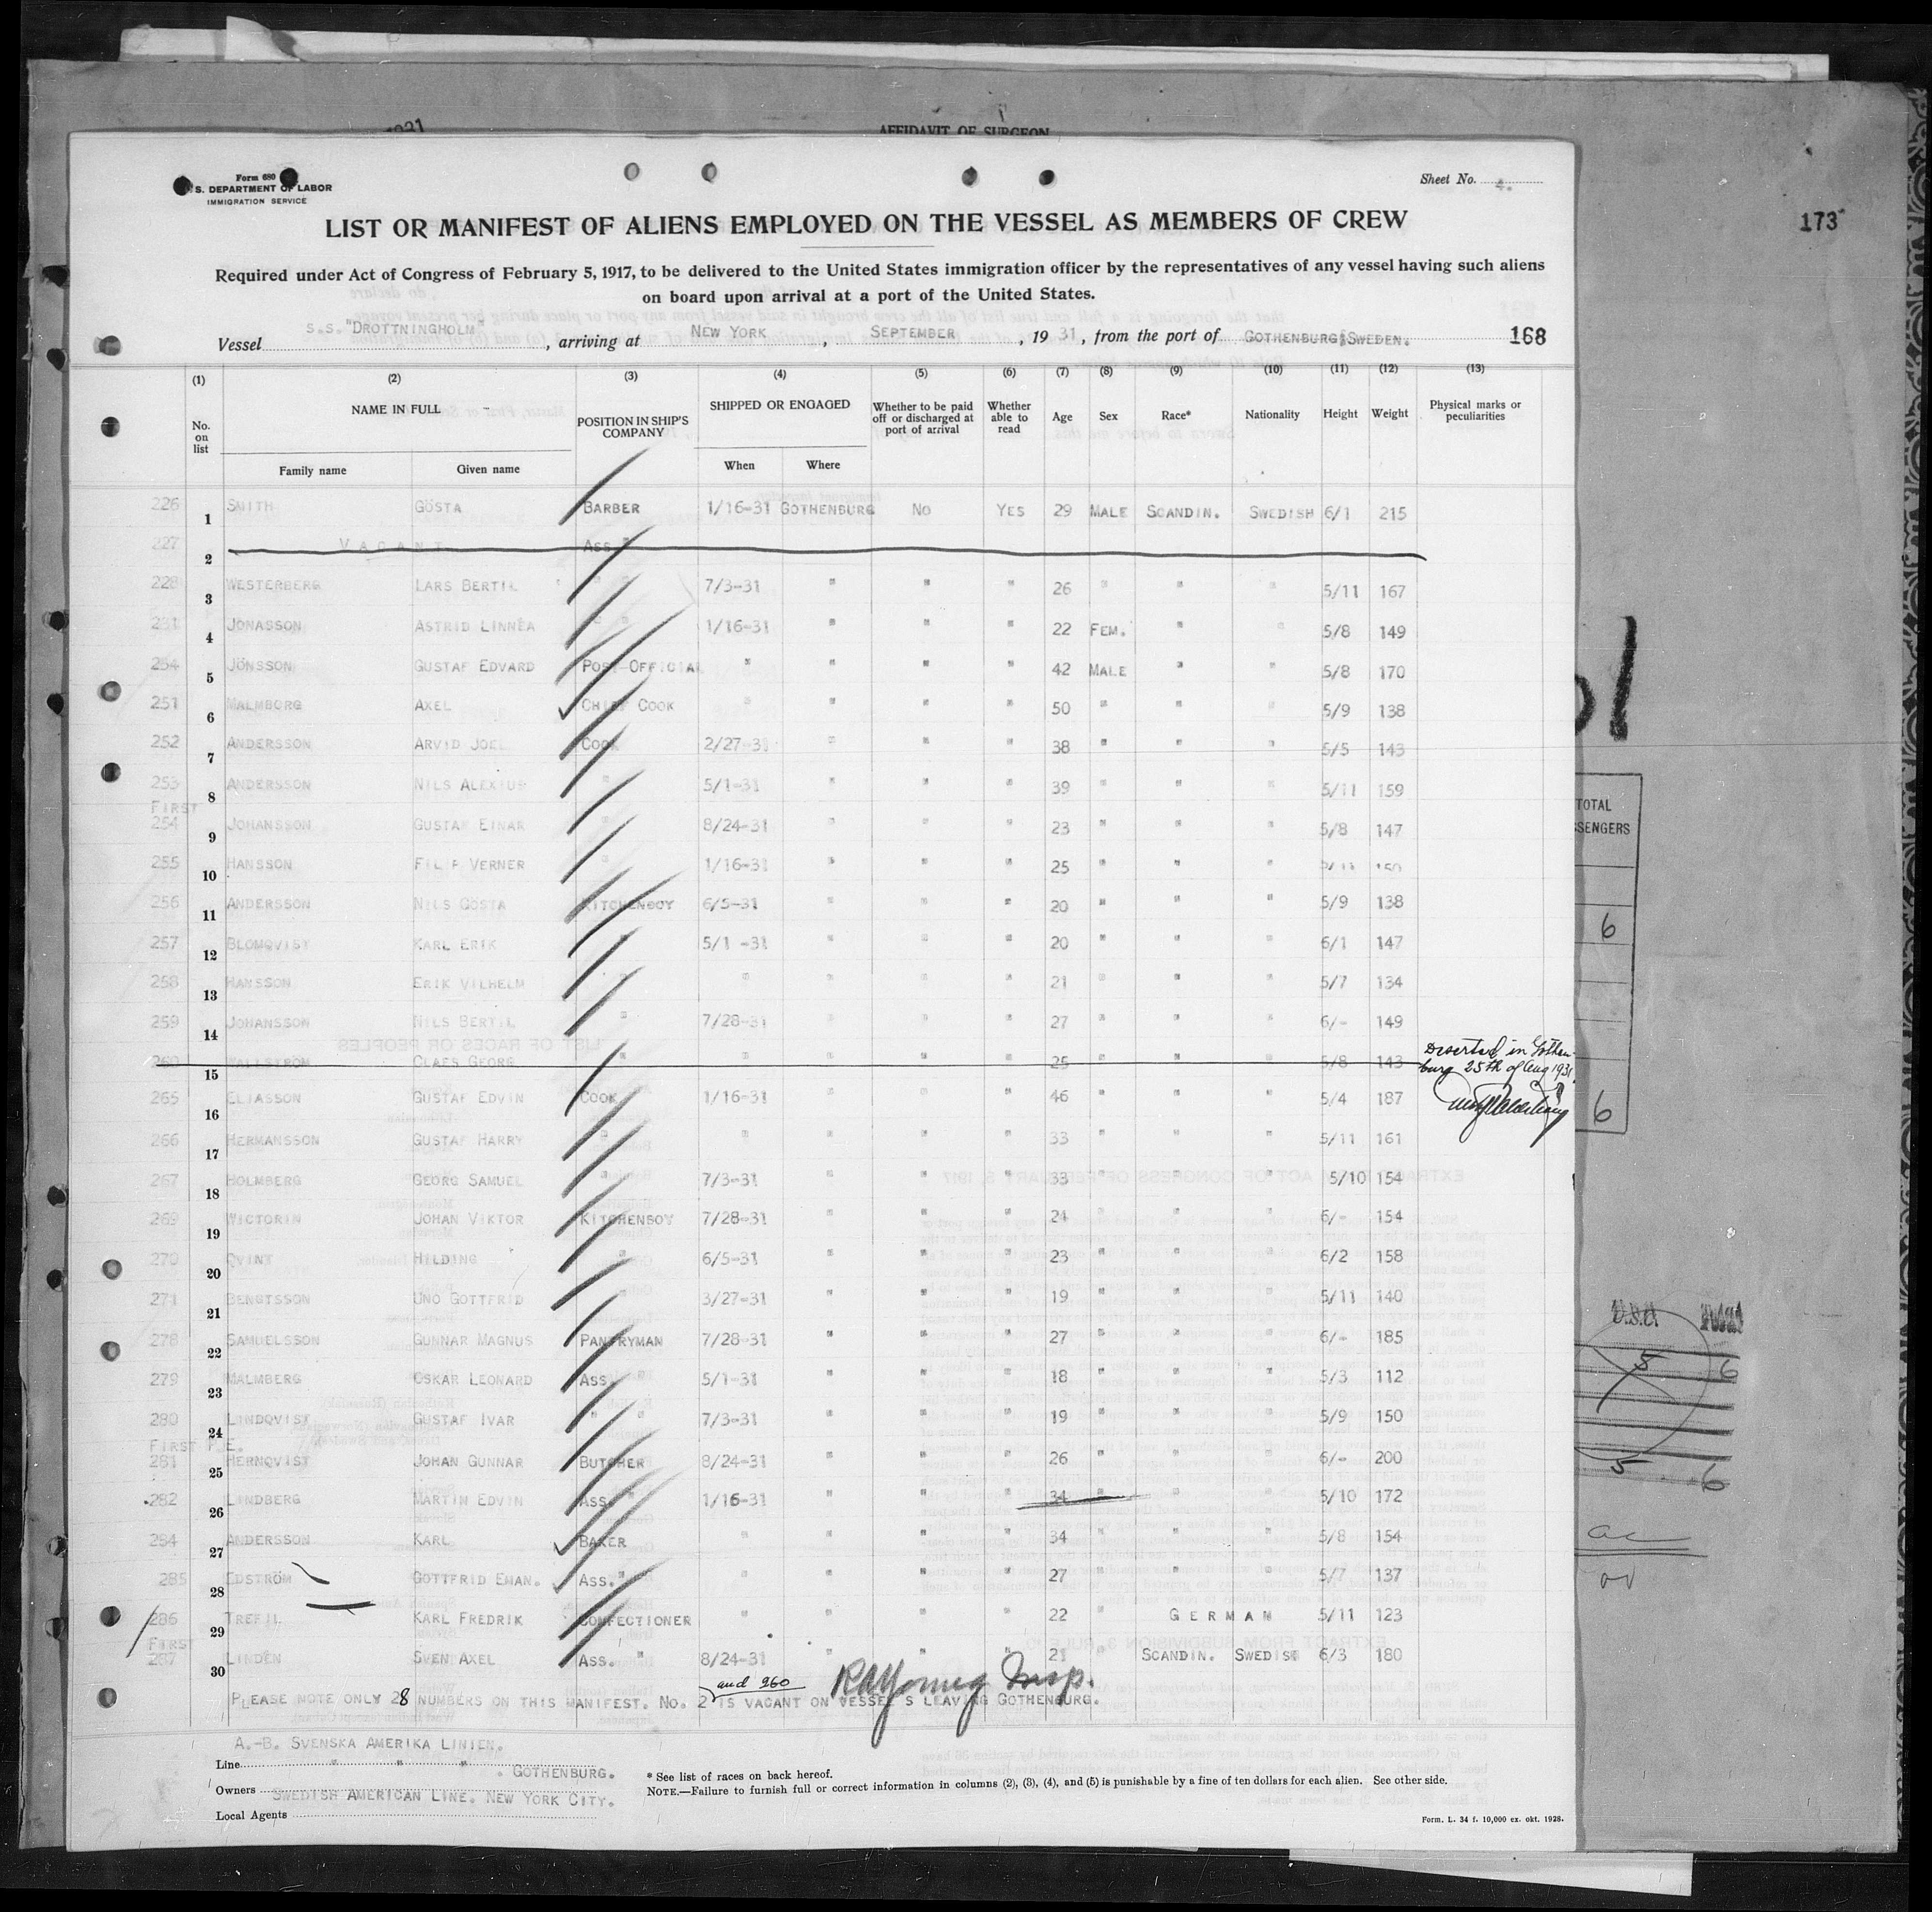 AFFIDAVIT OF SURGEON
173
Form 680
S. DEPARTMENT OF LABOR
IMMIGRATION SERVICE
Sheet No. 4.
LIST OR MANIFEST OF ALIENS EMPLOYED ON THE VESSEL AS MEMBERS OF CREW
Required under Act of Congress of February 5, 1917, to be delivered to the United States immigration officer by the representatives of any vessel having such aliens
on board upon arrival at a port of the United States.
Vessel S.S. "DROTTNINGHOLM", arriving at NEW YORK, SEPTEMBER, 1931, from the port of GOTHENBURG, SWEDEN. 168
(1) (2) (3) (4) (5) (6) (7) (8) (9) (10) (11) (12) (13)
No. on list NAME IN FULL Family name Given name POSITION IN SHIP'S COMPANY SHIPPED OR ENGAGED When Where Whether to be paid off or discharged at port of arrival Whether able to read Age Sex Race* Nationality Height Weight Physical marks or peculiarities
226 1 SMITH GÖSTA BARBER 1/16-31 GOTHENBURG NO YES 29 MALE SCANDIN. SWEDISH 6/1 215
227 2 VACANT ASS "
228 3 WESTERBERG LARS BERTIL " " 7/3-31 " " " 26 " " " 5/11 167
231 4 JONASSON ASTRID LINNÉA " " 1/16-31 " " " 22 FEM. " " 5/8 149
234 5 JÖNSSON GUSTAF EDVARD POST-OFFICIAL " " " " 42 MALE " " 5/8 170
251 6 MALMBORG AXEL CHIEF COOK " " " " 50 " " " 5/9 138
252 7 ANDERSSON ARVID JOEL COOK 2/27-31 " " " 38 " " " 5/5 143
253 8 ANDERSSON NILS ALEXIUS " 5/1-31 " " " 39 " " " 5/11 159
FIRST
254 9 JOHANSSON GUSTAF EINAR " 8/24-31 " " " 23 " " " 5/8 147
255 10 HANSSON FILIP VERNER " 1/16-31 " " " 25 " " " 5/11 150
256 11 ANDERSSON NILS GÖSTA KITCHENBOY 6/5-31 " " " 20 " " " 5/9 138
257 12 BLOMQVIST KARL ERIK " 5/1 -31 " " " 20 " " " 6/1 147
258 13 HANSSON ERIK VILHELM " " " " " 21 " " " 5/7 134
259 14 JOHANSSON NILS BERTIL " 7/28-31 " " " 27 " " " 6/- 149
260 15 WALLSTRÖM CLAES GEORG " " " " " 25 " " " 5/8 143 Deserted in Gothenburg 25th of Aug 1931.
265 16 ELIASSON GUSTAF EDVIN COOK 1/16-31 " " " 46 " " " 5/4 187
266 17 HERMANSSON GUSTAF HARRY " " " " " 33 " " " 5/11 161
267 18 HOLMBERG GEORG SAMUEL " 7/3-31 " " " 33 " " " 5/10 154
269 19 WICTORIN JOHAN VIKTOR KITCHENBOY 7/28-31 " " " 24 " " " 6/- 154
270 20 QVINT HILDING " 6/5-31 " " " 23 " " " 6/2 158
271 21 BENGTSSON UNO GOTTFRID " 3/27-31 " " " 19 " " " 5/11 140
278 22 SAMUELSSON GUNNAR MAGNUS PANTRYMAN 7/28-31 " " " 27 " " " 6/- 185
279 23 MALMBERG OSKAR LEONARD ASS. " 5/1-31 " " " 18 " " " 5/3 112
280 24 LINDQVIST GUSTAF IVAR " " 7/3-31 " " " 19 " " " 5/9 150
FIRST P.E.
281 25 HERNQVIST JOHAN GUNNAR BUTCHER 8/24-31 " " " 26 " " " 6/- 200
282 26 LINDBERG MARTIN EDVIN ASS. " 1/16-31 " " " 34 " " " 5/10 172
284 27 ANDERSSON KARL BAKER " " " " 34 " " " 5/8 154
285 28 EDSTRÖM GOTTFRID EMAN. ASS. " " " " " 27 " " " 5/7 137
286 29 TREFIL KARL FREDRIK CONFECTIONER " " " " 22 " GERMAN 5/11 123
FIRST
287 30 LINDÉN SVEN AXEL ASS. " 8/24-31 " " " 21 " SCANDIN. SWEDISH 6/3 180
and 260 RAYoung Insp.
PLEASE NOTE ONLY 28 NUMBERS ON THIS MANIFEST. NO. 2 IS VACANT ON VESSEL'S LEAVING GOTHENBURG.
A.-B. SVENSKA AMERIKA LINIEN.
Line " " " . GOTHENBURG.
Owners SWEDISH AMERICAN LINE. NEW YORK CITY.
Local Agents
* See list of races on back hereof.
NOTE.—Failure to furnish full or correct information in columns (2), (3), (4), and (5) is punishable by a fine of ten dollars for each alien. See other side.
Form. L. 34 f. 10,000 ex. okt. 1928.
TOTAL
SENGERS
6
6
U.S.A Total
5 6
5 6